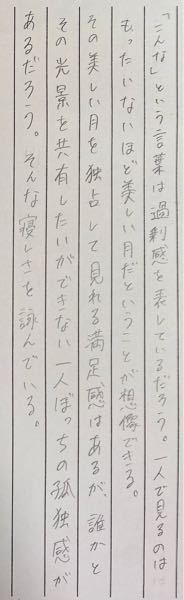 「こんな」という言葉は過剰感を表しているだろう。一人で見るのは
もったいないほど美しい月だということが想像できる。
その美しい月を独占して見れる満足感はあるが、誰かと
その光景を共有したいができない一人ぼっちの孤独感が
あるだろう。そんな寂しさを詠んでいる。